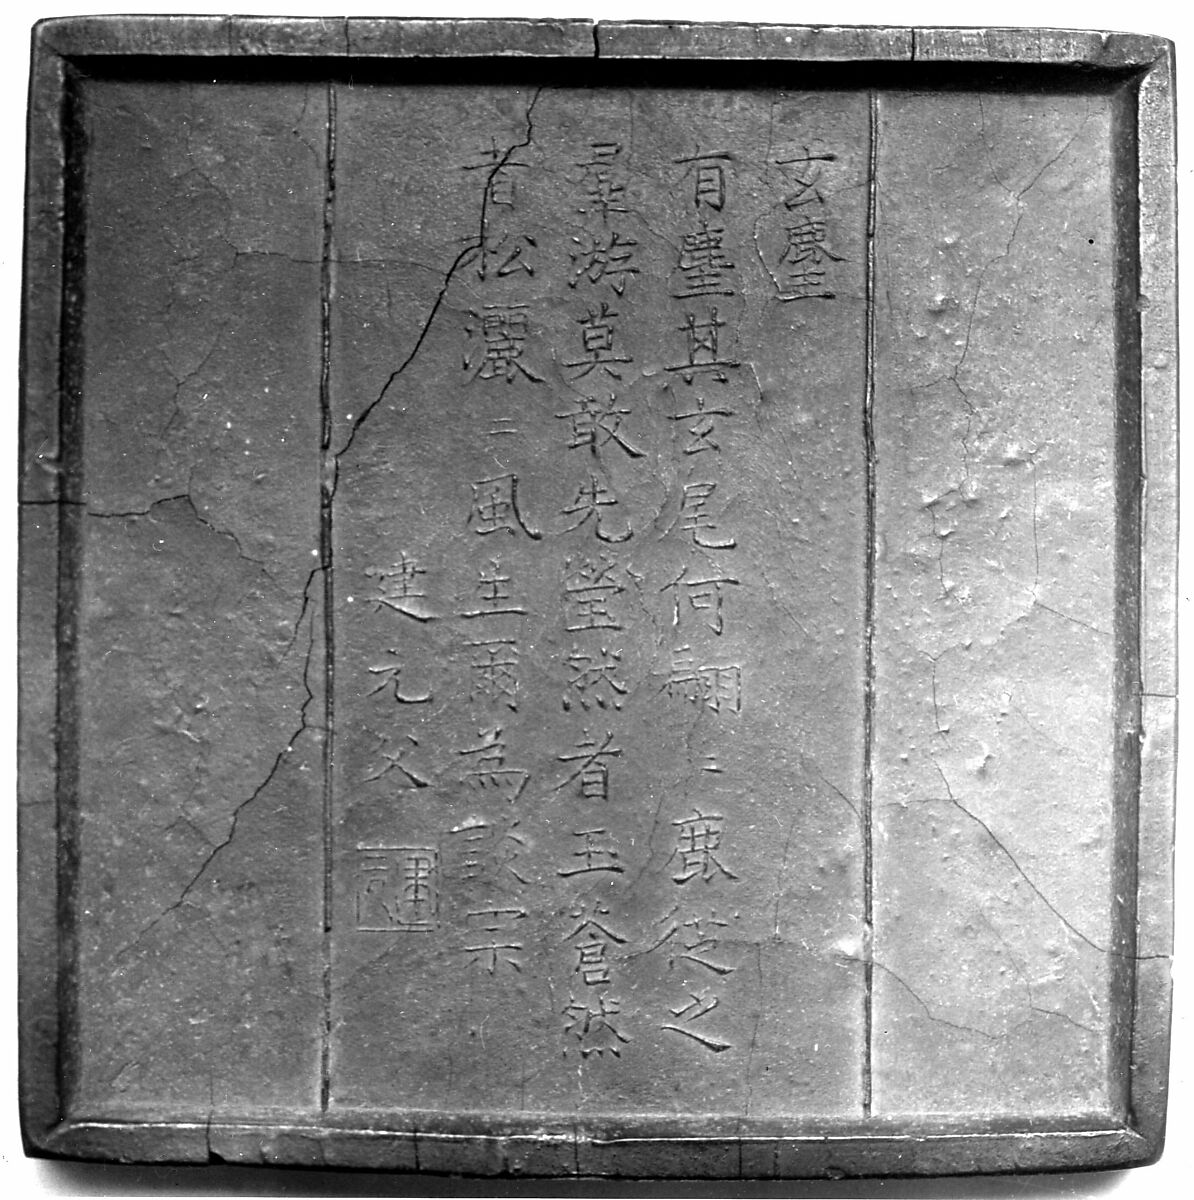 玄麈
有麈其玄尾何翩〻鹿從之
羣游莫敢先瑩然者玉蒼然
者松灑〻風生爾為談宗
建元父
建元